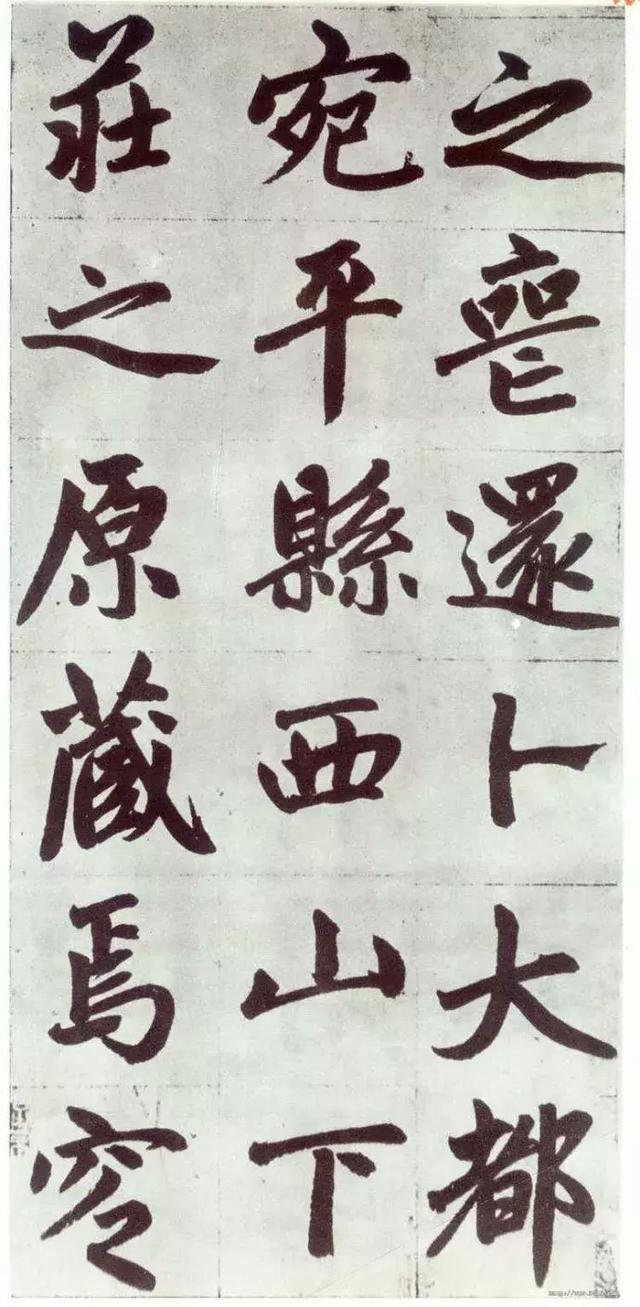 之喪還卜大都
宛平縣西山下
莊之原藏焉